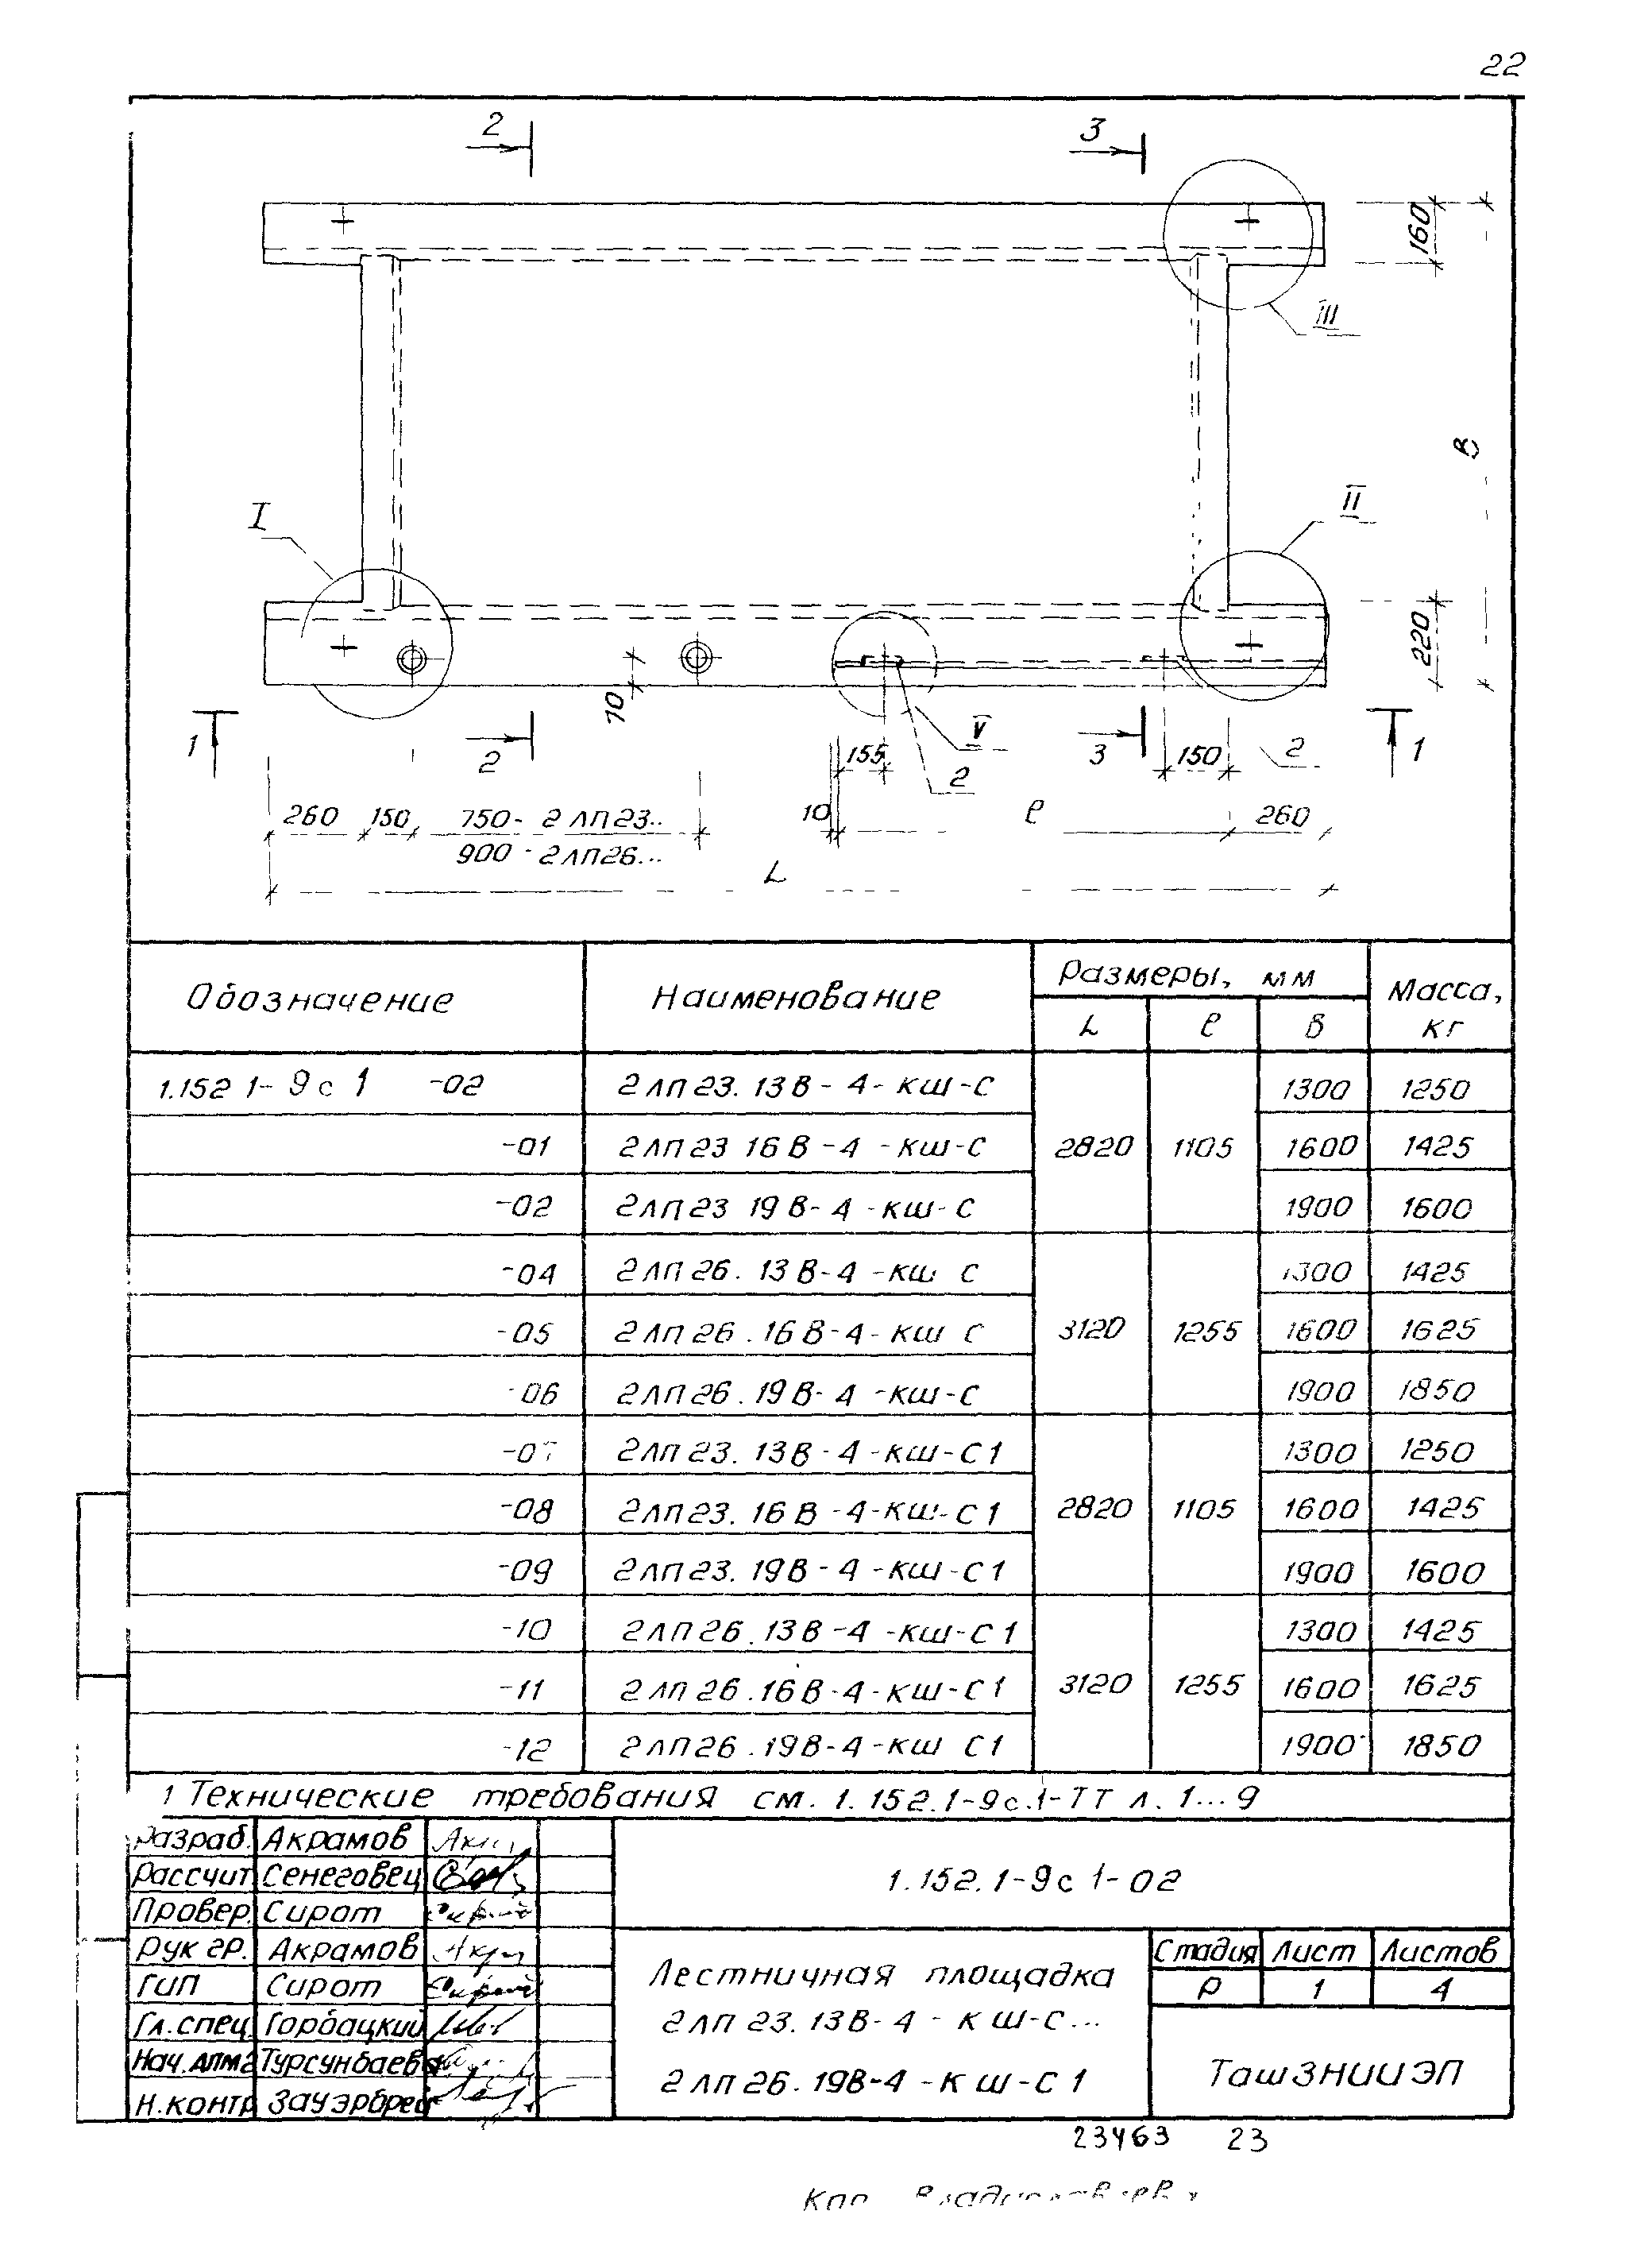 22
2
3
160
III
В
I
II
220
10
1
2
V
155
2
3
150
2
1
260
150
750- 2ЛП23..
10
ℓ
260
900 - 2ЛП26...
L
Обозначение
Наименование
Размеры, мм
Масса, кг
L
ℓ
В
1.152 1-9с 1 -02
2ЛП23.13В-4-КШ-С
1300
1250
-01
2ЛП23 16В-4-КШ-С
2820
1105
1600
1425
-02
2ЛП23 19В-4-КШ-С
1900
1600
-04
2ЛП26.13В-4-КШ С
1300
1425
-05
2ЛП26.16В-4-КШ С
3120
1255
1600
1625
-06
2ЛП26.19В-4-КШ-С
1900
1850
-07
2ЛП23.13В-4-КШ-С1
1300
1250
-08
2ЛП23.16В-4-КШ-С1
2820
1105
1600
1425
-09
2ЛП23.19В-4-КШ-С1
1900
1600
-10
2ЛП26.13В-4-КШ-С1
1300
1425
-11
2ЛП26.16В-4-КШ-С1
3120
1255
1600
1625
-12
2ЛП26.19В-4-КШ С1
1900
1850
1 Технические требования см. 1.152.1-9с.1-ТТ л. 1...9
Разраб. Акрамов
Рассчит Сенеговец
Провер. Сирот
Рук гр. Акрамов
ГИП Сирот
Гл.спец. Горбацкий
Нач. АПМ2 Турсунбаева
Н.контр Зауэрбрей
1.152.1-9с 1-02
Лестничная площадка
2ЛП23.13В-4-КШ-С...
2ЛП26.19В-4-КШ-С1
Стадия Лист Листов
Р 1 4
ТашЗНИИЭП
23463 23